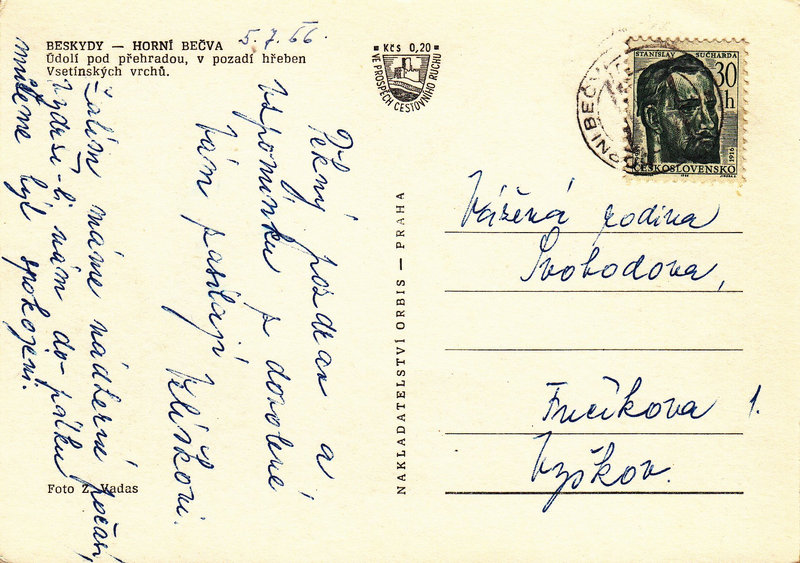 BESKYDY — HORNÍ BEČVA
Údolí pod přehradou, v pozadí hřeben
Vsetínských vrchů.
5.7.66.
Kčs 0,20
VE PROSPĚCH CESTOVNÍHO RUCHU
STANISLAV SUCHARDA
30
h
1916
ČESKOSLOVENSKO
HORNÍ BEČVA
Pěkný pozdrav a
vzpomínku z dovolené
Vám zasílají
Klíškovi.
Zatím máme nádherné počasí,
vydrží-li nám do pátku
můžeme být spokojeni.
NAKLADATELSTVÍ ORBIS — PRAHA
Vážená rodina
Svobodova,
Fučíkova 1.
Vyškov.
Foto Z. Vadas